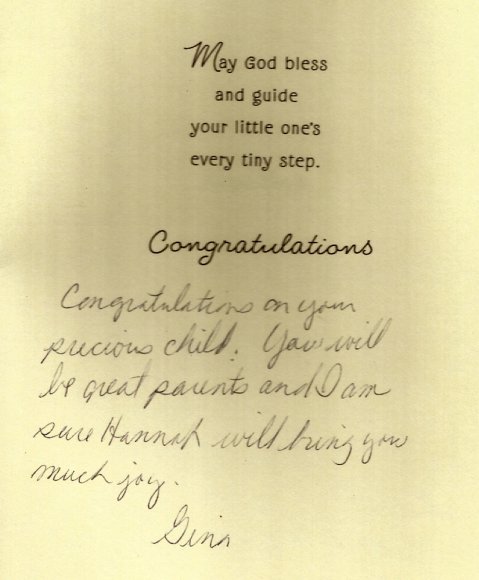 May God bless
and guide
your little one's
every tiny step.
Congratulations
Congratulations on your
precious child. You will
be great parents and I am
sure Hannah will bring you
much joy.
Gina